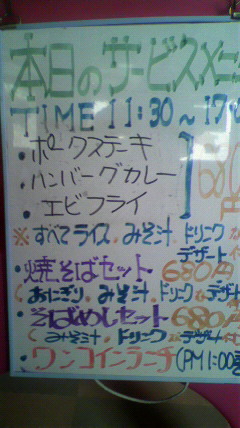 本日のサービスメニ
TIME 11:30～17:
・ポークステーキ
・ハンバーグカレー
・エビフライ
680円
※すべてライス・みそ汁・ドリンク
デザート
・焼そばセット 680円
(おにぎり・みそ汁・ドリンク・デザート
・そばめしセット 680円
(みそ汁・ドリンク・デザート
・ワンコインランチ(PM1:00